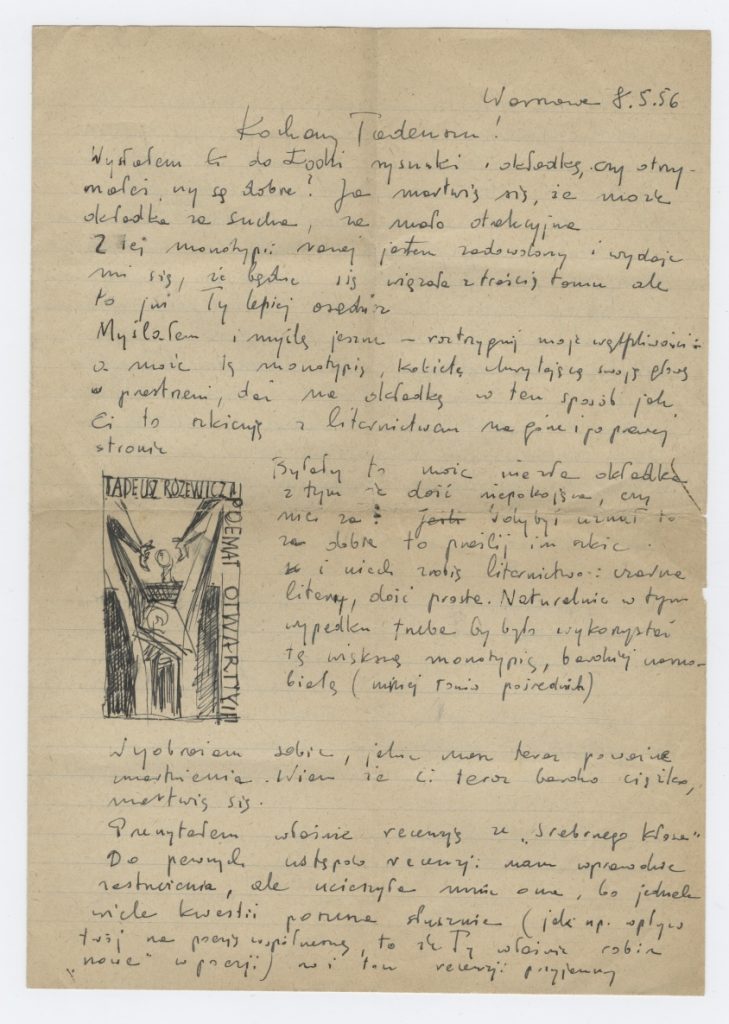 Warszawa 8.5.56
Kochany Tadeuszu!
Wysłałem Ci do Łodzi rysunki i okładkę, czy otrzy-
małeś, czy są dobre? Ja martwię się, że może
okładka za sucha, za mało atrakcyjna
Z tej monotypii raczej jestem zadowolony i wydaje
mi się, że będzie się wiązała z treścią tomu ale
to już Ty lepiej osądzisz
Myślałem i myślę jeszcze – roztrzygnij moje wątpliwości –
a może tę monotypię, kobietę chwytającą swoją głowę
w przestrzeni, dać na okładkę w ten sposób jak
Ci to szkicuję z liternictwem na górze i po prawej
stronie
TADEUSZ RÓŻEWICZ
POEMAT OTWARTY
Byłaby to może niezła okładka
z tym że dość niepokojąca, czy
nie za? Gdybyś uznał to
za dobre to prześlij im szkic
i niech zrobią liternictwo: czarne
litery, dość proste. Naturalnie w tym
wypadku trzeba by było wykorzystać
tę większą monotypię, bardziej czarno-
białą (mniej tonów pośrednich)
Wyobrażam sobie, jakie masz teraz poważne
zmartwienia. Wiem że Ci teraz bardzo ciężko,
martwię się.
Przeczytałem właśnie recenzję ze „Srebrnego Kłosa"
Do pewnych ustępów recenzji mam wprawdzie
zastrzeżenia, ale ucieszyła mnie ona, bo jednak
wiele kwestii porusza słusznie (jak np. wpływ
twój na poezję współczesną, to że Ty właśnie robisz
„nowe" w poezji) no i ton recenzji przyjemny